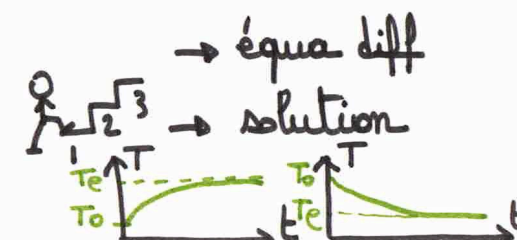 → équa diff
1 2 3
→ solution
T
Te
To
t
T
To
Te
t